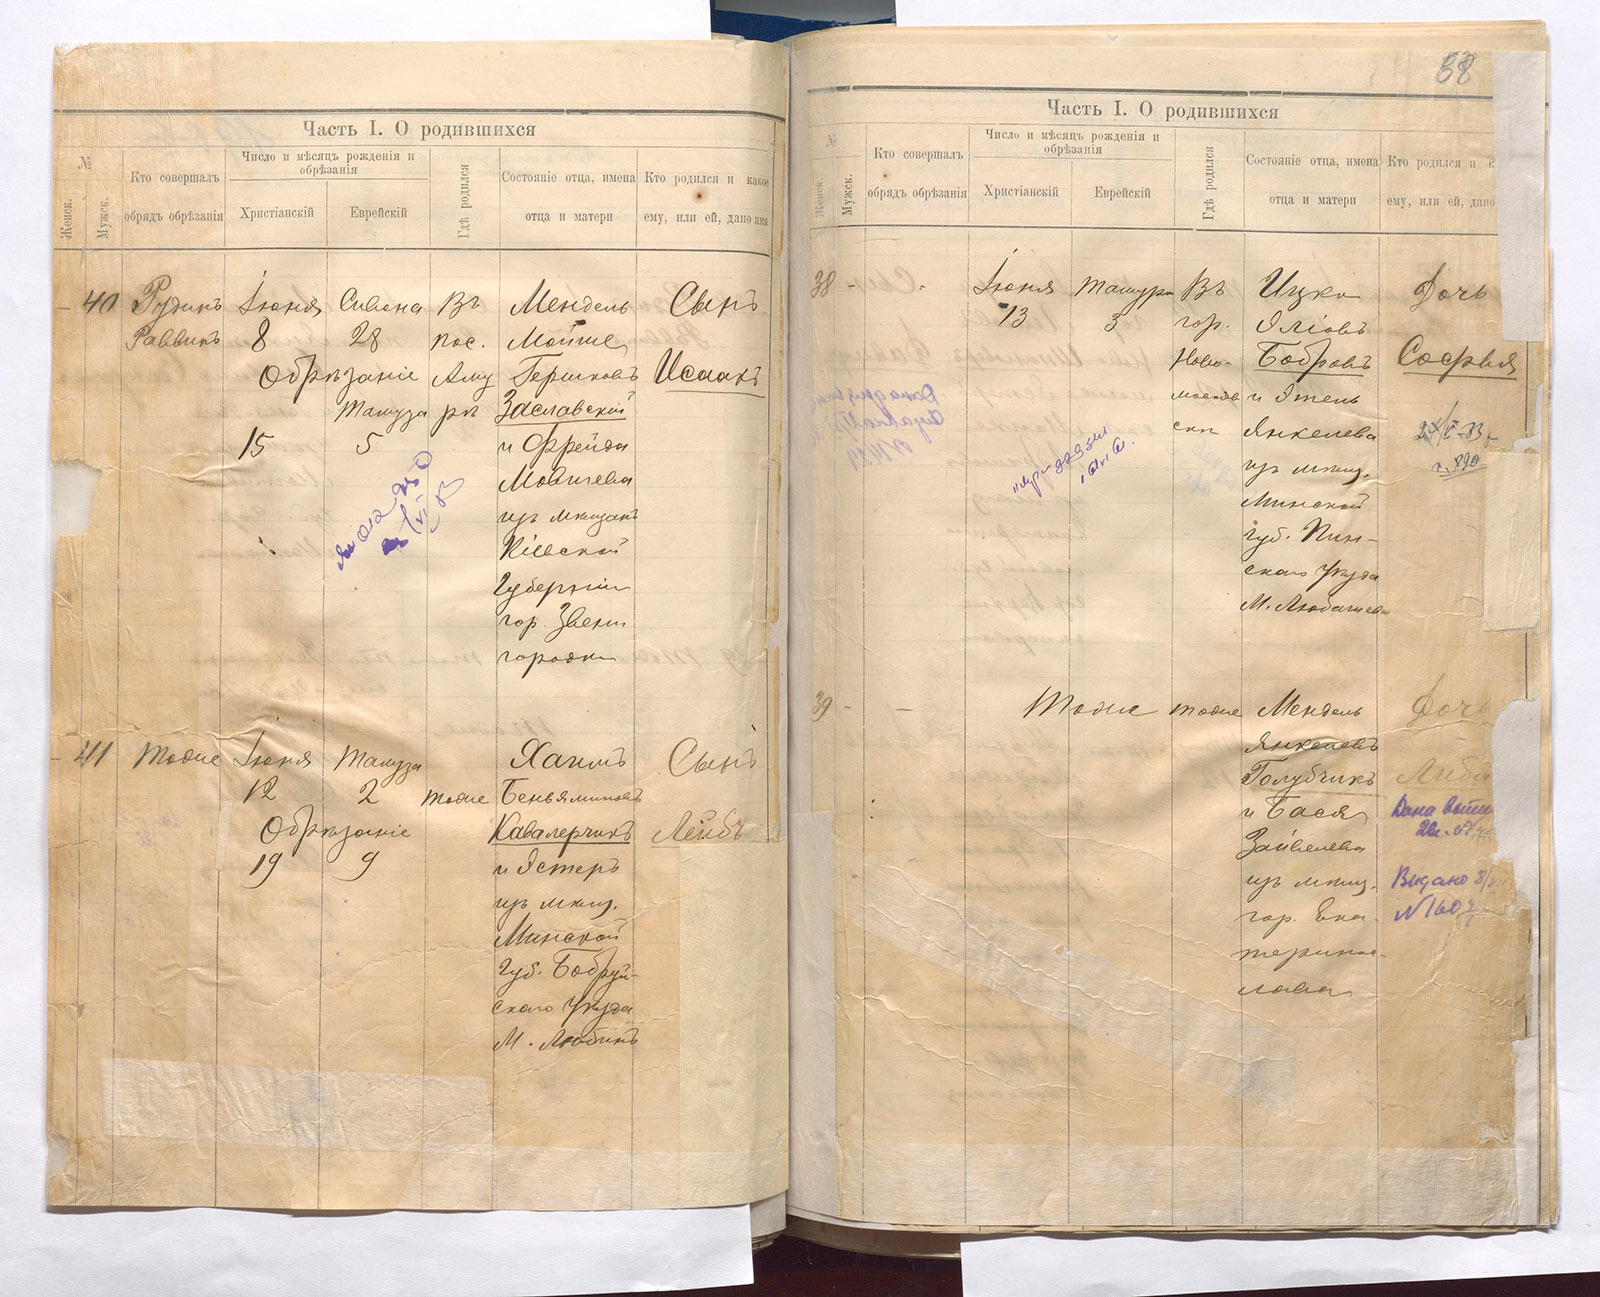 Часть I. О родившихся
№
Женск.
Мужск.
Кто совершалъ
обрядъ обрѣзанія
Число и мѣсяцъ рожденія и
обрѣзанія
Христіанскій
Еврейскій
Гдѣ родился
Состояніе отца, имена
отца и матери
Кто родился и какое
ему, или ей, дано имя
- 40 Рудинъ Іюня Сивана Въ Мендель Сынъ
Раввинъ 8 28 пос. Мойше
Обрѣзаніе Аму Гершковъ Исаакъ
Тамуза ръ Заславскій
15 5 и Фрейда
Мовшева
изъ мѣщанъ
Кіевской
Губерніи
гор. Звени
городки
- 41 Тоже Іюня Тамуза Хаимъ Сынъ
12 2 тоже Беньяминовъ
Обрѣзаніе Кавалерчикъ Лейбъ
19 9 и Эстеръ
изъ мѣщ.
Минской
Губ. Бобруй-
скаго Уѣзда
М. Любинъ
88
Часть I. О родившихся
№
Женск.
Мужск.
Кто совершалъ
обрядъ обрѣзанія
Число и мѣсяцъ рожденія и
обрѣзанія
Христіанскій
Еврейскій
Гдѣ родился
Состояніе отца, имена
отца и матери
Кто родился и к
ему, или ей, дано
38 - - Іюня Тамуза Въ Ицко Дочь
13 3 гор. Эліовъ
Ново- Бобровъ Софья
москов и Этель
ски Янкелева
изъ мѣщ.
Минской
губ. Пин-
скаго Уѣзда
М. Любашев
39 - - Тоже тоже Мендель Дочь
Янкелевъ
Голубчикъ Либа
и Бася Дана
Зайвелева
изъ мѣщ. Видано
гор. Ека- N 1607
терино-
слава